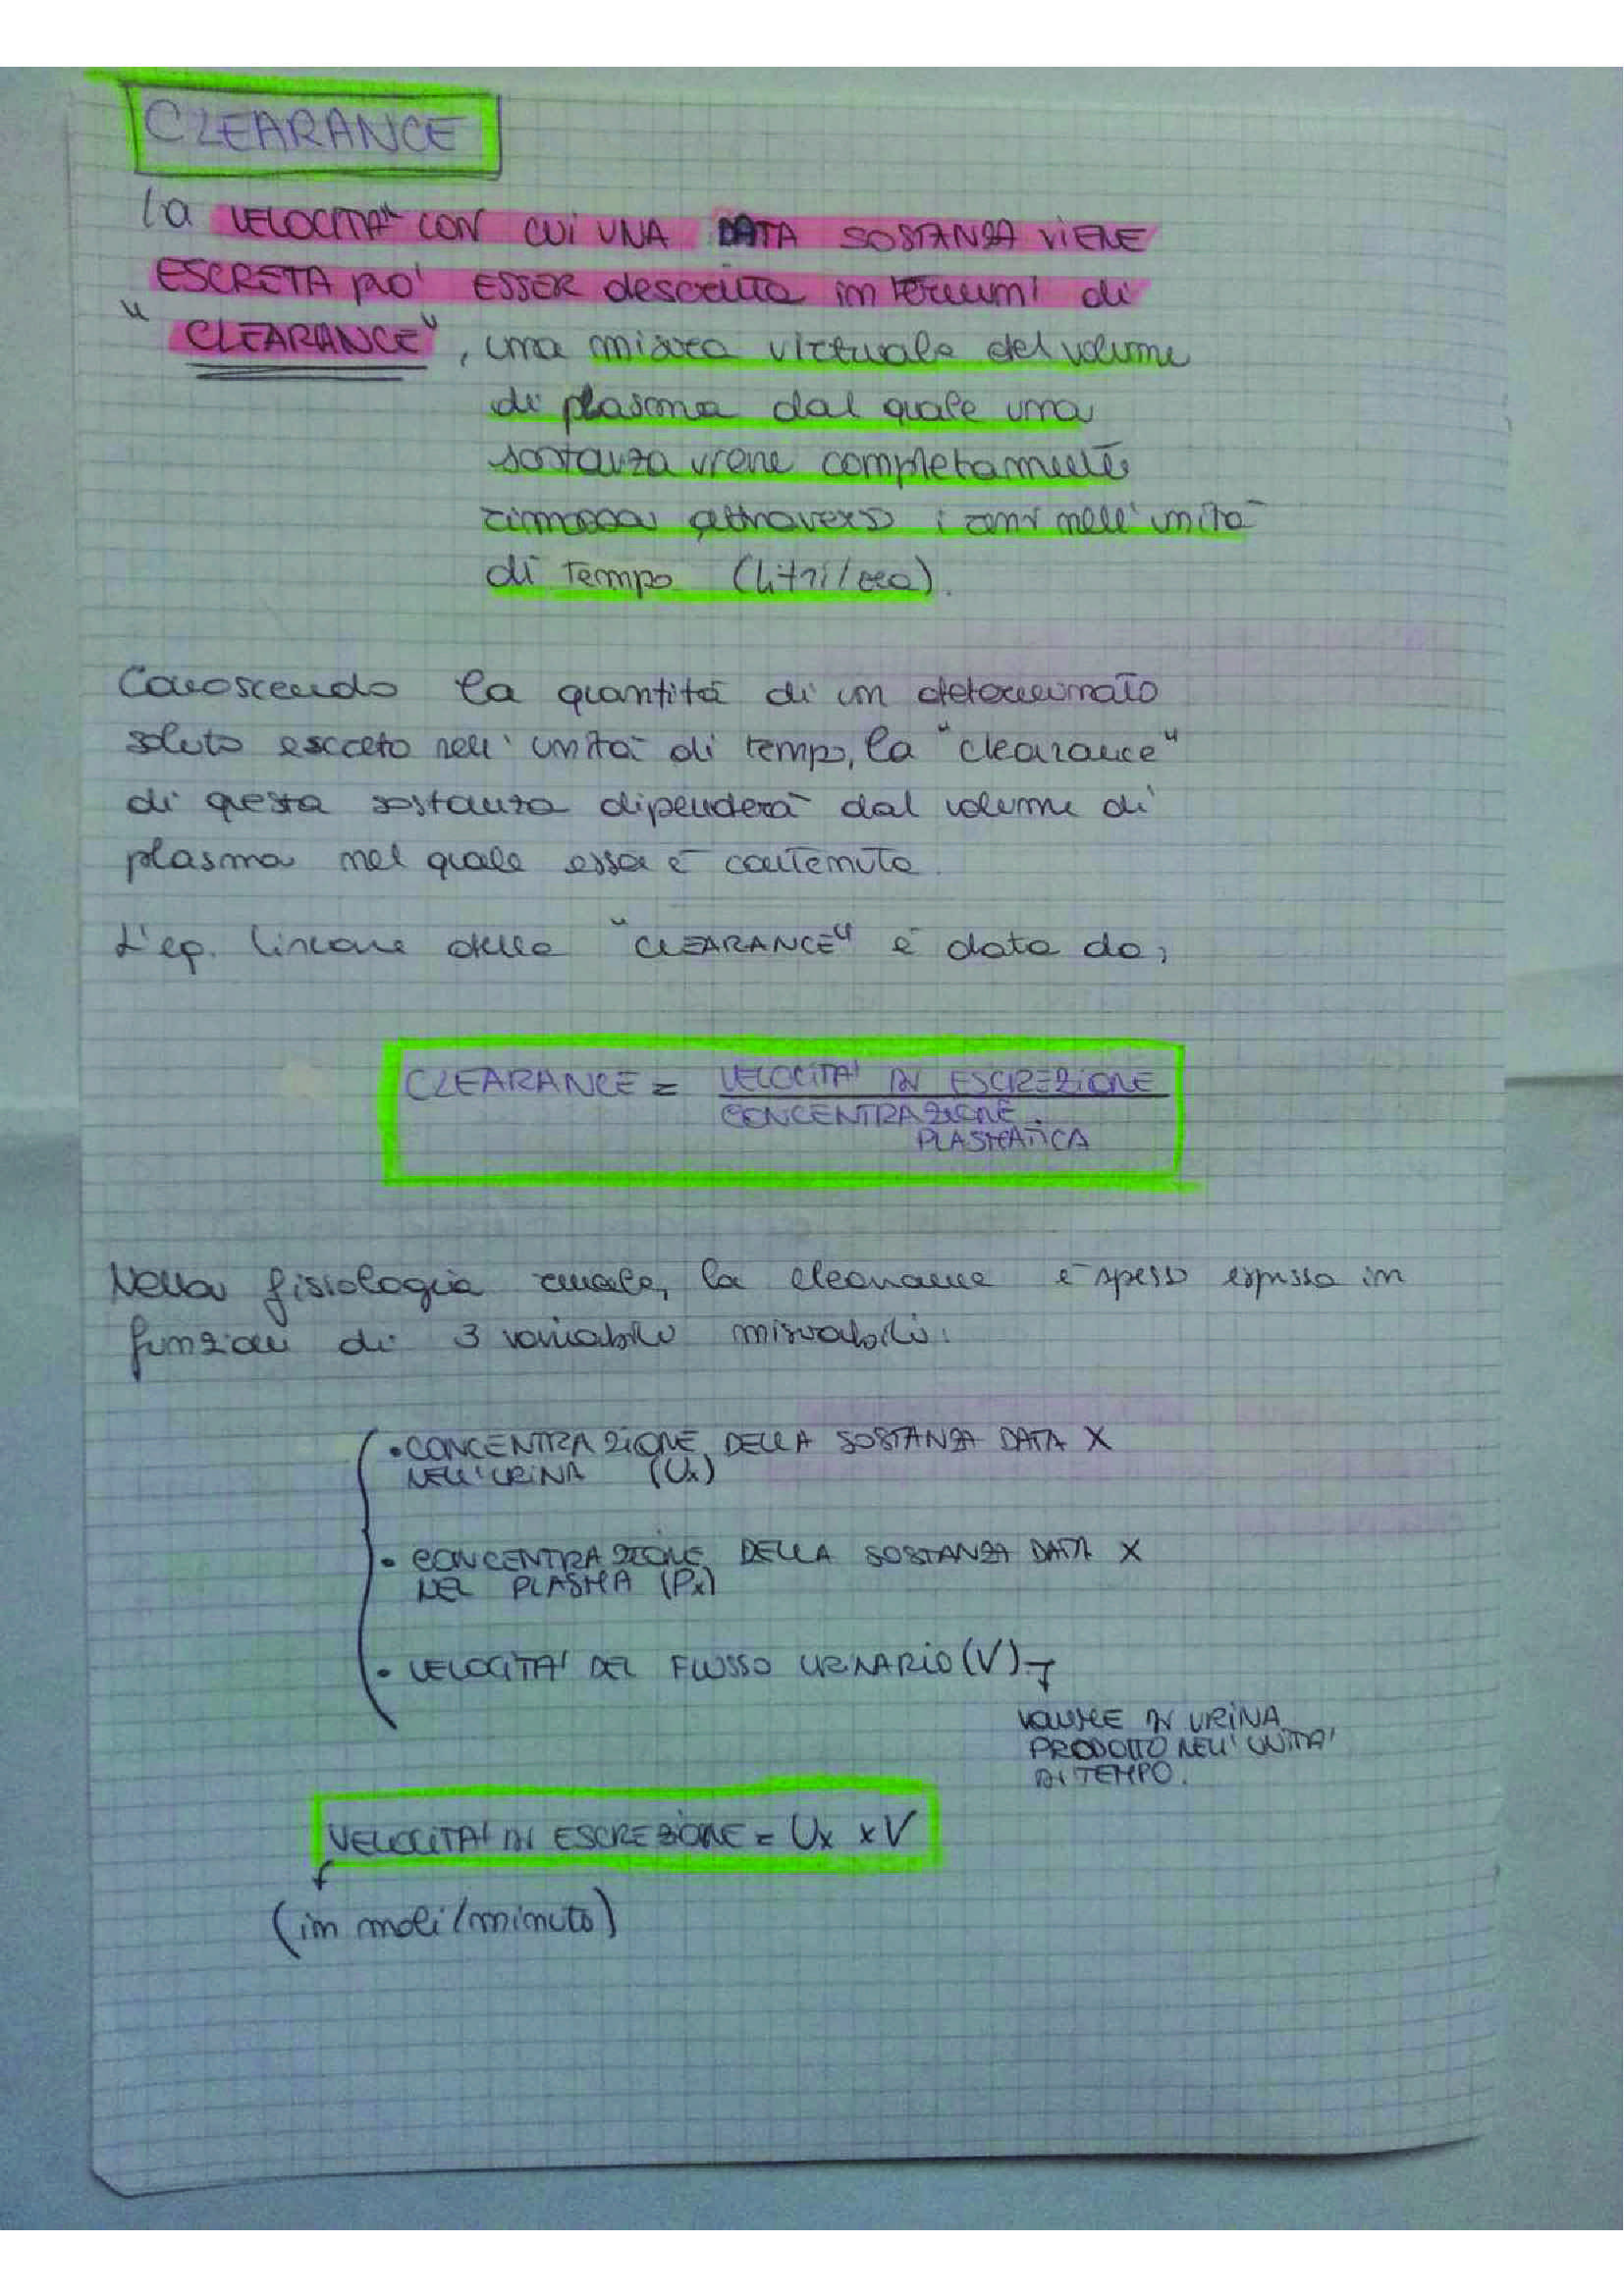 CLEARANCE
La VELOCITA' CON CUI UNA DATA SOSTANZA VIENE
ESCRETA PUO' ESSER descritta in termini di
"CLEARANCE", una misura virtuale del volume
di plasma dal quale una
sostanza viene completamente
rimossa attraverso i reni nell'unità
di tempo (litri/ora).
Conoscendo la quantità di un determinato
soluto escreto nell'unità di tempo, la "clearance"
di questa sostanza dipenderà dal volume di
plasma nel quale essa è contenuta.
L'eq. lineare della "CLEARANCE" è data da:
CLEARANCE = VELOCITA' DI ESCREZIONE
CONCENTRAZIONE
PLASMATICA
Nella fisiologia renale, la clearance è spesso espressa in
funzione di 3 variabili misurabili:
• CONCENTRAZIONE DELLA SOSTANZA DATA X
NELL'URINA (Ux)
• CONCENTRAZIONE DELLA SOSTANZA DATA X
NEL PLASMA (Px)
• VELOCITA' DEL FLUSSO URINARIO (V) →
VOLUME DI URINA
PRODOTTO NELL'UNITA'
DI TEMPO.
VELOCITA' DI ESCREZIONE = Ux x V
(in moli/minuto)